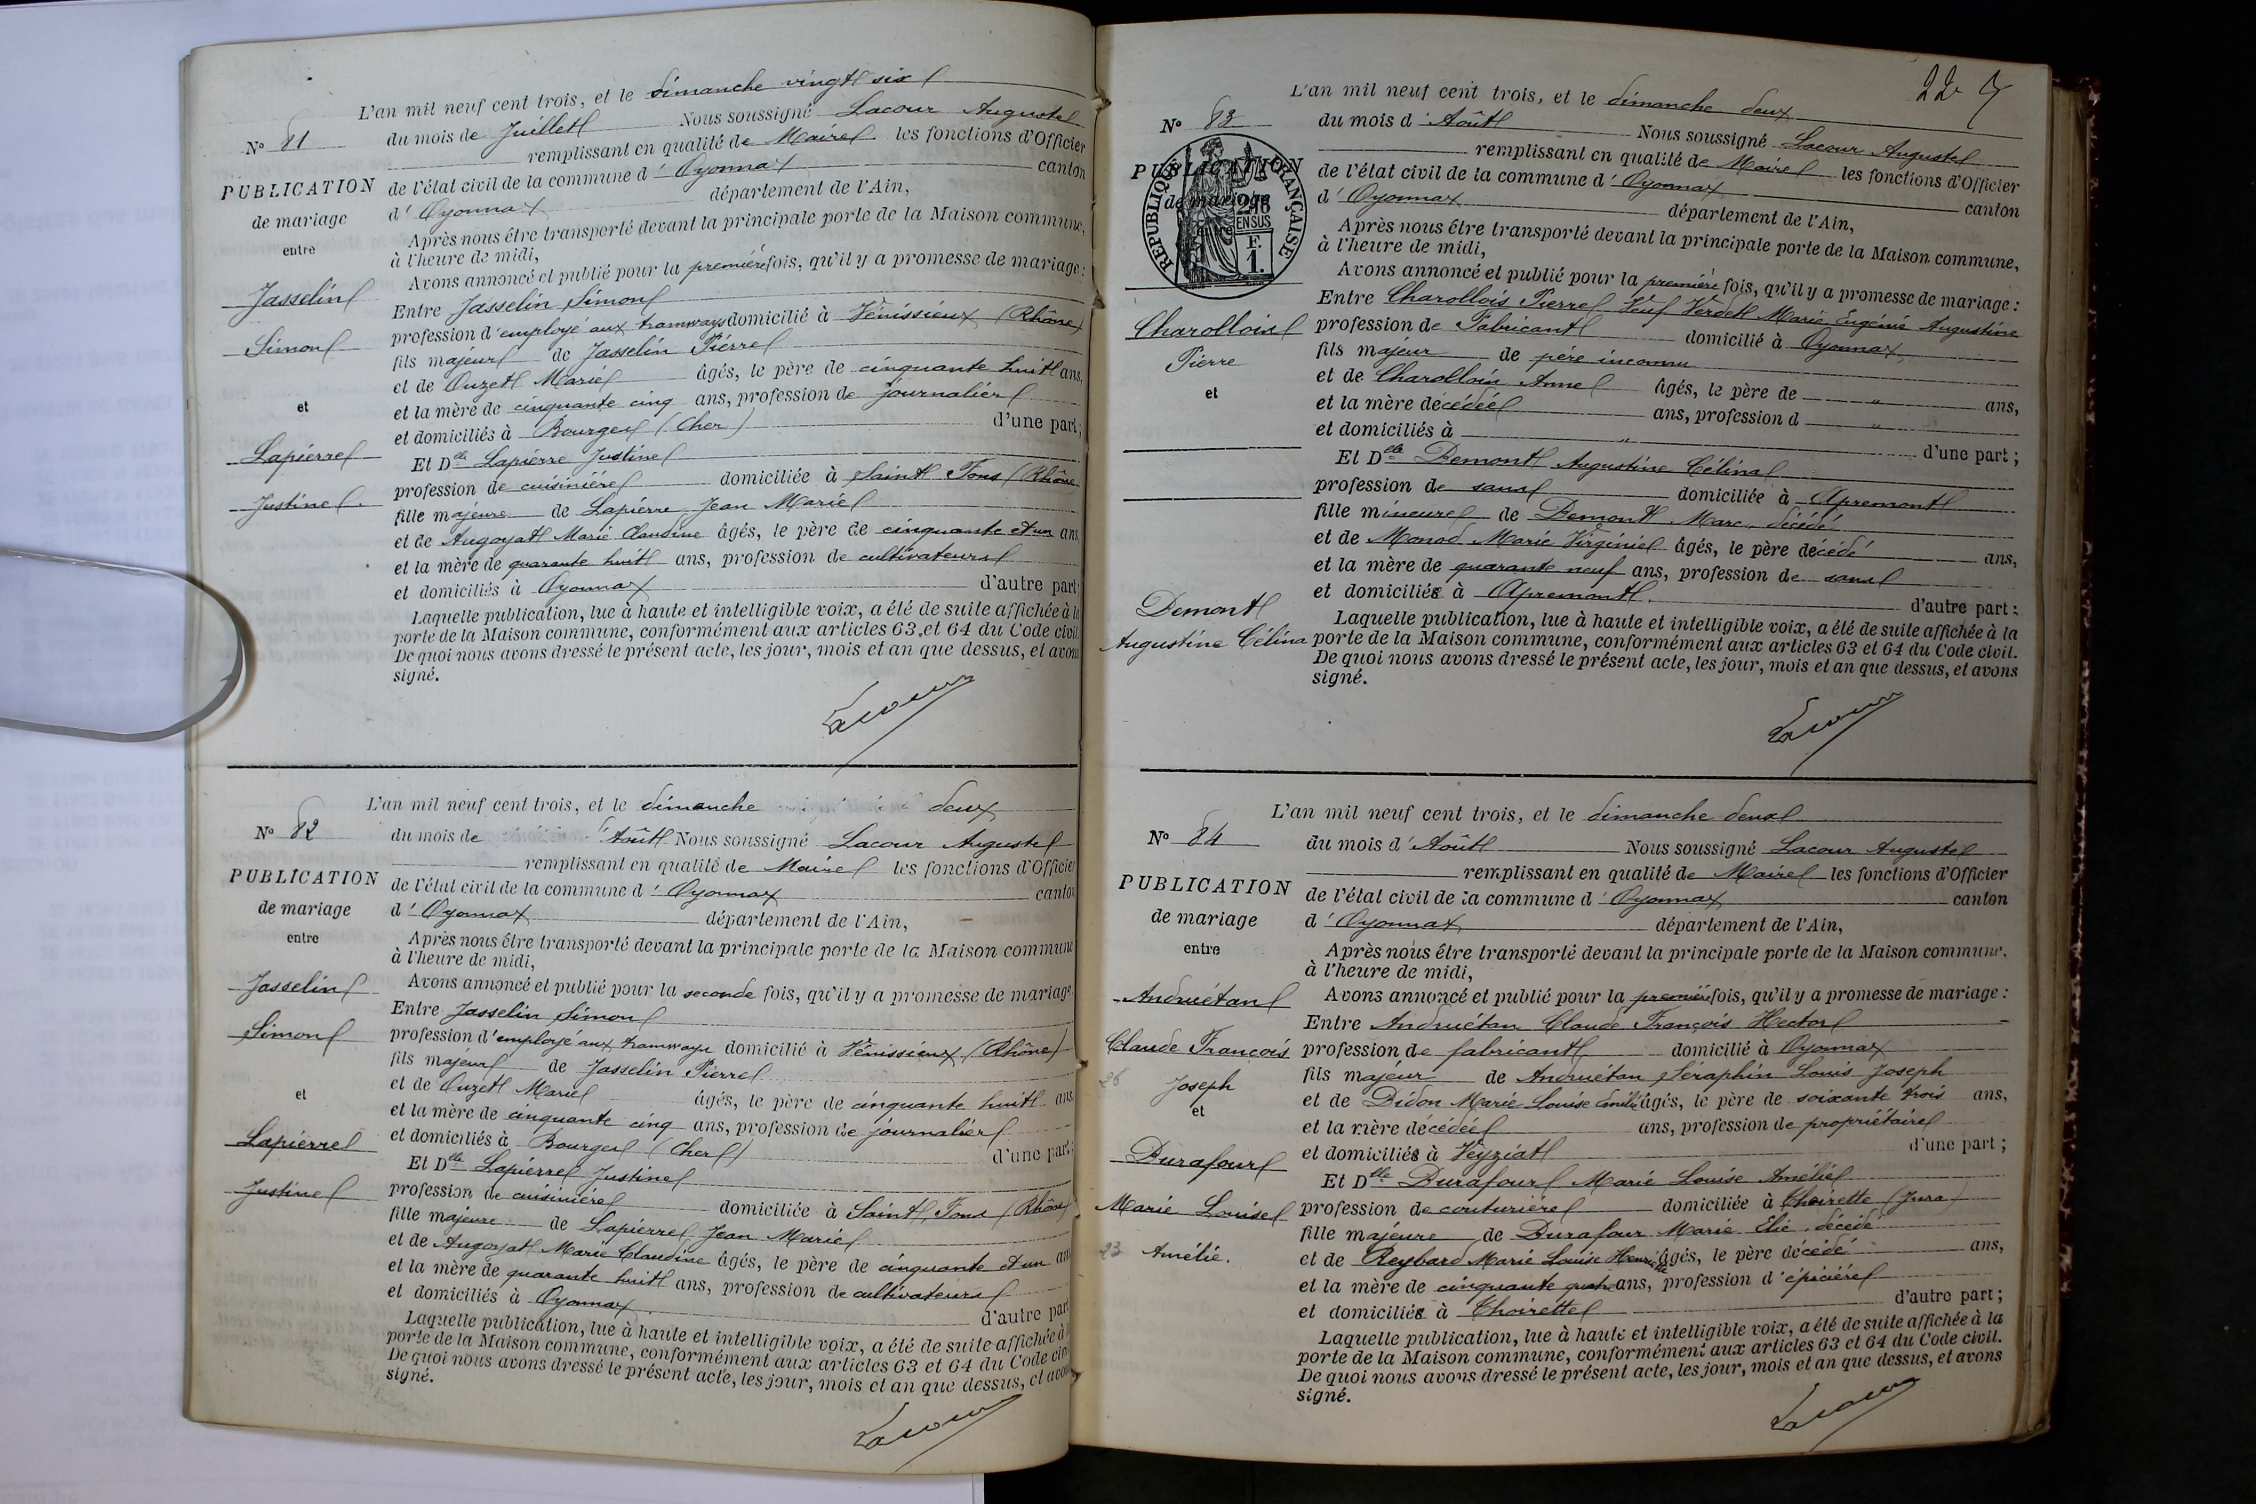 L'an mil neuf cent trois, et le dimanche vingt six
N° 81
du mois de Juillet Nous soussigné Lacour Auguste
remplissant en qualité de Maire les fonctions d'Officier
PUBLICATION
de mariage
entre
de l'état civil de la commune d'Oyonnax canton
d'Oyonnax département de l'Ain,
Après nous être transporté devant la principale porte de la Maison commune,
à l'heure de midi,
Avons annoncé et publié pour la première fois, qu'il y a promesse de mariage :
Josselin
Simon
et
Lapierre
Justine
Entre Josselin Simon
profession d'employé aux tramways domicilié à Vénissieux (Rhône)
fils majeur de Josselin Pierre
et de Ouzet Marie âgés, le père de cinquante huit ans,
et la mère de cinquante cinq ans, profession de journalier
et domiciliés à Bourges (Cher) d'une part ;
Et Dlle Lapierre Justine
profession de cuisinière domiciliée à Saint Fons (Rhône
fille majeure de Lapierre Jean Marie
et de Augoyat Marie Claudine âgés, le père de cinquante et un ans
et la mère de quarante huit ans, profession de cultivateurs
et domiciliés à Oyonnax d'autre part
Laquelle publication, lue à haute et intelligible voix, a été de suite affichée à la
porte de la Maison commune, conformément aux articles 63 et 64 du Code civil.
De quoi nous avons dressé le présent acte, les jour, mois et an que dessus, et avons
signé.
Lacour
L'an mil neuf cent trois, et le dimanche deux
N° 82
du mois de Août Nous soussigné Lacour Auguste
remplissant en qualité de Maire les fonctions d'Officier
PUBLICATION
de mariage
entre
de l'état civil de la commune d'Oyonnax canton
d'Oyonnax département de l'Ain,
Après nous être transporté devant la principale porte de la Maison commune
à l'heure de midi,
Avons annoncé et publié pour la seconde fois, qu'il y a promesse de mariage
Josselin
Simon
et
Lapierre
Justine
Entre Josselin Simon
profession d'employé aux tramways domicilié à Vénissieux (Rhône)
fils majeur de Josselin Pierre
et de Ouzet Marie âgés, le père de cinquante huit ans
et la mère de cinquante cinq ans, profession de journalier
et domiciliés à Bourges (Cher) d'une part ;
Et Dlle Lapierre Justine
profession de cuisinière domiciliée à Saint Fons (Rhône)
fille majeure de Lapierre Jean Marie
et de Augoyat Marie Claudine âgés, le père de cinquante et un an
et la mère de quarante huit ans, profession de cultivateurs
et domiciliés à Oyonnax d'autre part
Laquelle publication, lue à haute et intelligible voix, a été de suite affichée à l
porte de la Maison commune, conformément aux articles 63 et 64 du Code civ
De quoi nous avons dressé le présent acte, les jour, mois et an que dessus, et avon
signé.
Lacour
22
L'an mil neuf cent trois, et le dimanche deux
N° 83
du mois d'Août Nous soussigné Lacour Auguste
remplissant en qualité de Maire les fonctions d'Officier
PUBLICATION
de mariage
RÉPUBLIQUE FRANÇAISE
2/10
EN SUS
F.
1.
de l'état civil de la commune d'Oyonnax canton
d'Oyonnax département de l'Ain,
Après nous être transporté devant la principale porte de la Maison commune,
à l'heure de midi,
Avons annoncé et publié pour la première fois, qu'il y a promesse de mariage :
Charollois
Pierre
et
Demont
Augustine Célina
Entre Charollois Pierre Veuf Verdet Marie Eugénie Augustine
profession de Fabricant domicilié à Oyonnax
fils majeur de père inconnu
et de Charollois Anne âgés, le père de " ans,
et la mère décédée ans, profession d "
et domiciliés à " d'une part ;
Et Dlle Demont Augustine Célina
profession de sans domiciliée à Apremont
fille mineure de Demont Marc, décédé
et de Monod Marie Virginie âgés, le père décédé ans,
et la mère de quarante neuf ans, profession de sans
et domiciliés à Apremont d'autre part :
Laquelle publication, lue à haute et intelligible voix, a été de suite affichée à la
porte de la Maison commune, conformément aux articles 63 et 64 du Code civil.
De quoi nous avons dressé le présent acte, les jour, mois et an que dessus, et avons
signé.
Lacour
L'an mil neuf cent trois, et le dimanche deux
N° 84
du mois d'Août Nous soussigné Lacour Auguste
remplissant en qualité de Maire les fonctions d'Officier
PUBLICATION
de mariage
entre
de l'état civil de la commune d'Oyonnax canton
d'Oyonnax département de l'Ain,
Après nous être transporté devant la principale porte de la Maison commune,
à l'heure de midi,
Avons annoncé et publié pour la première fois, qu'il y a promesse de mariage :
Andruétan
Claude François
26 Joseph
et
Durafour
Marie Louise
23 Amélie.
Entre Andruétan Claude François Hector
profession de fabricant domicilié à Oyonnax
fils majeur de Andruétan Séraphin Louis Joseph
et de Didon Marie Louise Emélie âgés, le père de soixante trois ans,
et la mère décédée ans, profession de propriétaire
et domiciliés à Veyziat d'une part ;
Et Dlle Durafour Marie Louise Amélie
profession de couturière domiciliée à Thoirette (Jura)
fille majeure de Durafour Marie Elie, décédé
et de Reybard Marie Louise Henriette âgés, le père décédé ans,
et la mère de cinquante quatre ans, profession d'épicière
et domiciliés à Thoirette d'autre part ;
Laquelle publication, lue à haute et intelligible voix, a été de suite affichée à la
porte de la Maison commune, conformément aux articles 63 et 64 du Code civil.
De quoi nous avons dressé le présent acte, les jour, mois et an que dessus, et avons
signé.
Lacour